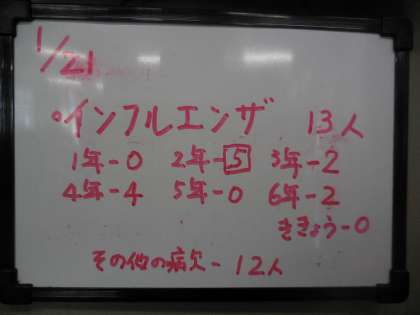 1/21
•インフルエンザ 13人
1年-0 2年-5 3年-2
4年-4 5年-0 6年-2
ききょう-0
その他の病欠-12人